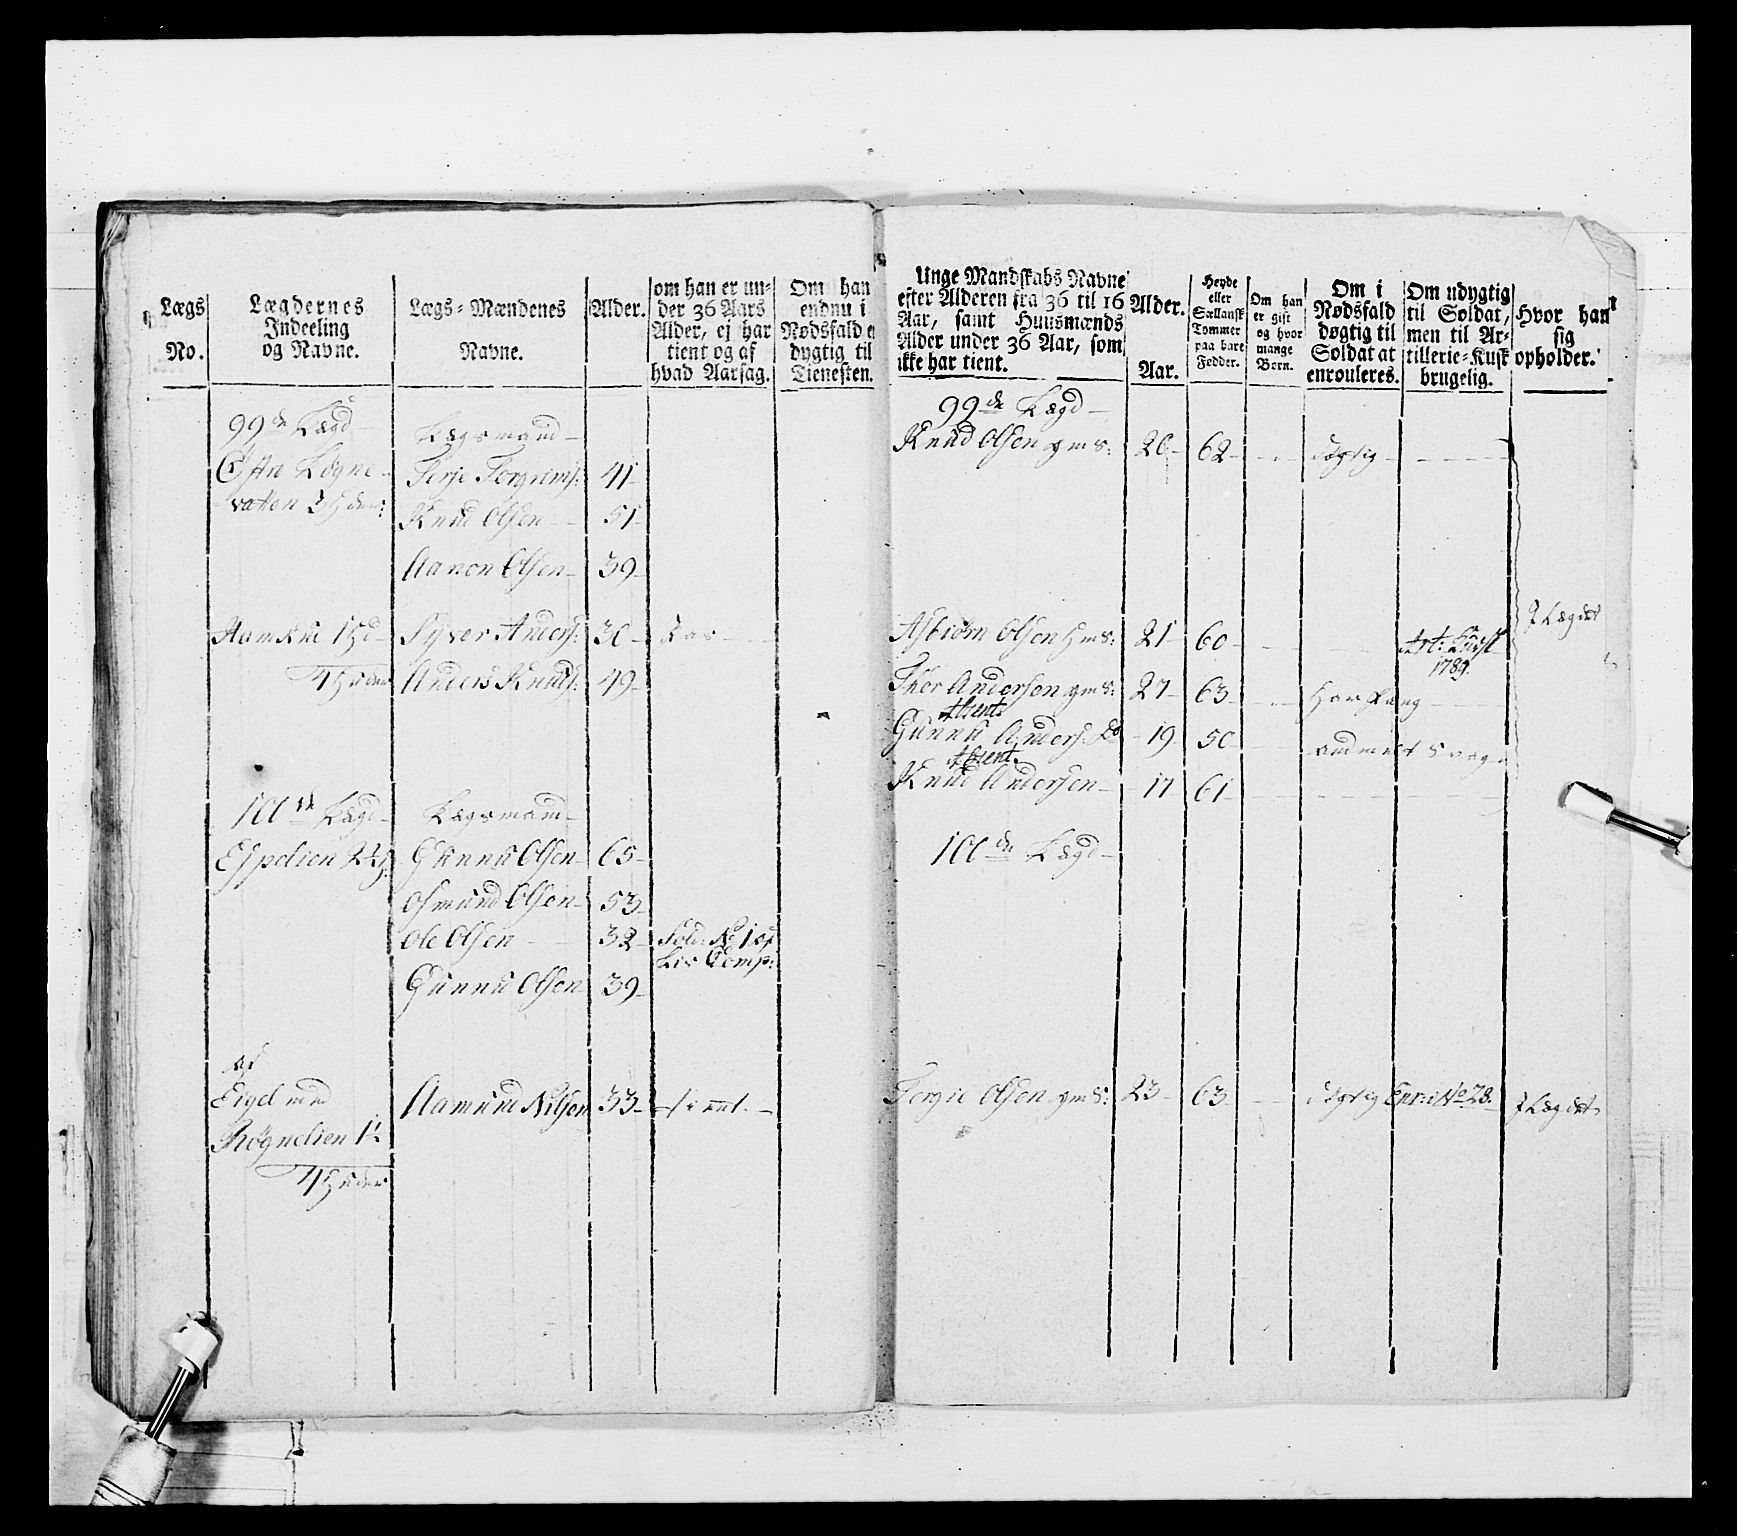 Lægs No.
Lægdernes Indeeling og Navne.
Lægs-Mændenes Navne.
Alder.
om han er under 36 Aars Alder, ej har tient og af hvad Aarsag.
Om han endnu i Nødsfald er dygtig til Tienesten.
99de Lægd
Lægsmand
Terje Torgrims: 41
vatten 3 Huder:
Knud Olsen 51
Aanon Olsen 39
Syver Anders: 30
4 Huder
Anders Knuds: 49
100de Lægd
Lægsmænd
Espelien 2½
Gunnu Olsen 65
Osmund Olsen 53
Ole Olsen 32 Sold: No 1 af
Liv Comp:
Gunnu Olsen 39
af
Eigel
Aamund Nilsen 33 tient
Røgnelien 1½
4 Huder
Unge Mandskabs Navne
efter Alderen fra 36 til 16
Aar, samt Huusmænds
Alder under 36 Aar, som
ikke har tient.
Alder.
Aar.
Heyde eller Sællansk Tommer paa bare Fødder.
Om han er gift og hvor mange Børn.
Om i Nødsfald døgtig til Soldat at enrouleres.
Om udygtig til Soldat, men til Artillerie-Kusk brugelig.
Hvor han sig opholder.
99de Lægd
Knud Olsen gmS: 26 62 dygtig
Asbiørn Olsen HmS: 21 60 Art: Kudsk 1789. J Lægdet
Thor Andersen gmS: 27 63
Absent.
Gunnu Anders: do 19 50
Absent.
Knud Andersen 17 61
100de Lægd
Tergie Olsen gmS: 23 63 dygtig Enr: No 28. J Lægdet